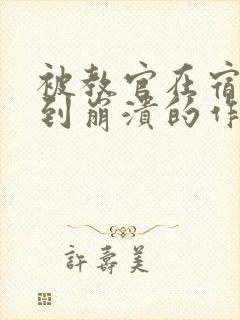 被教官在宿
到崩潰的作
許壽美